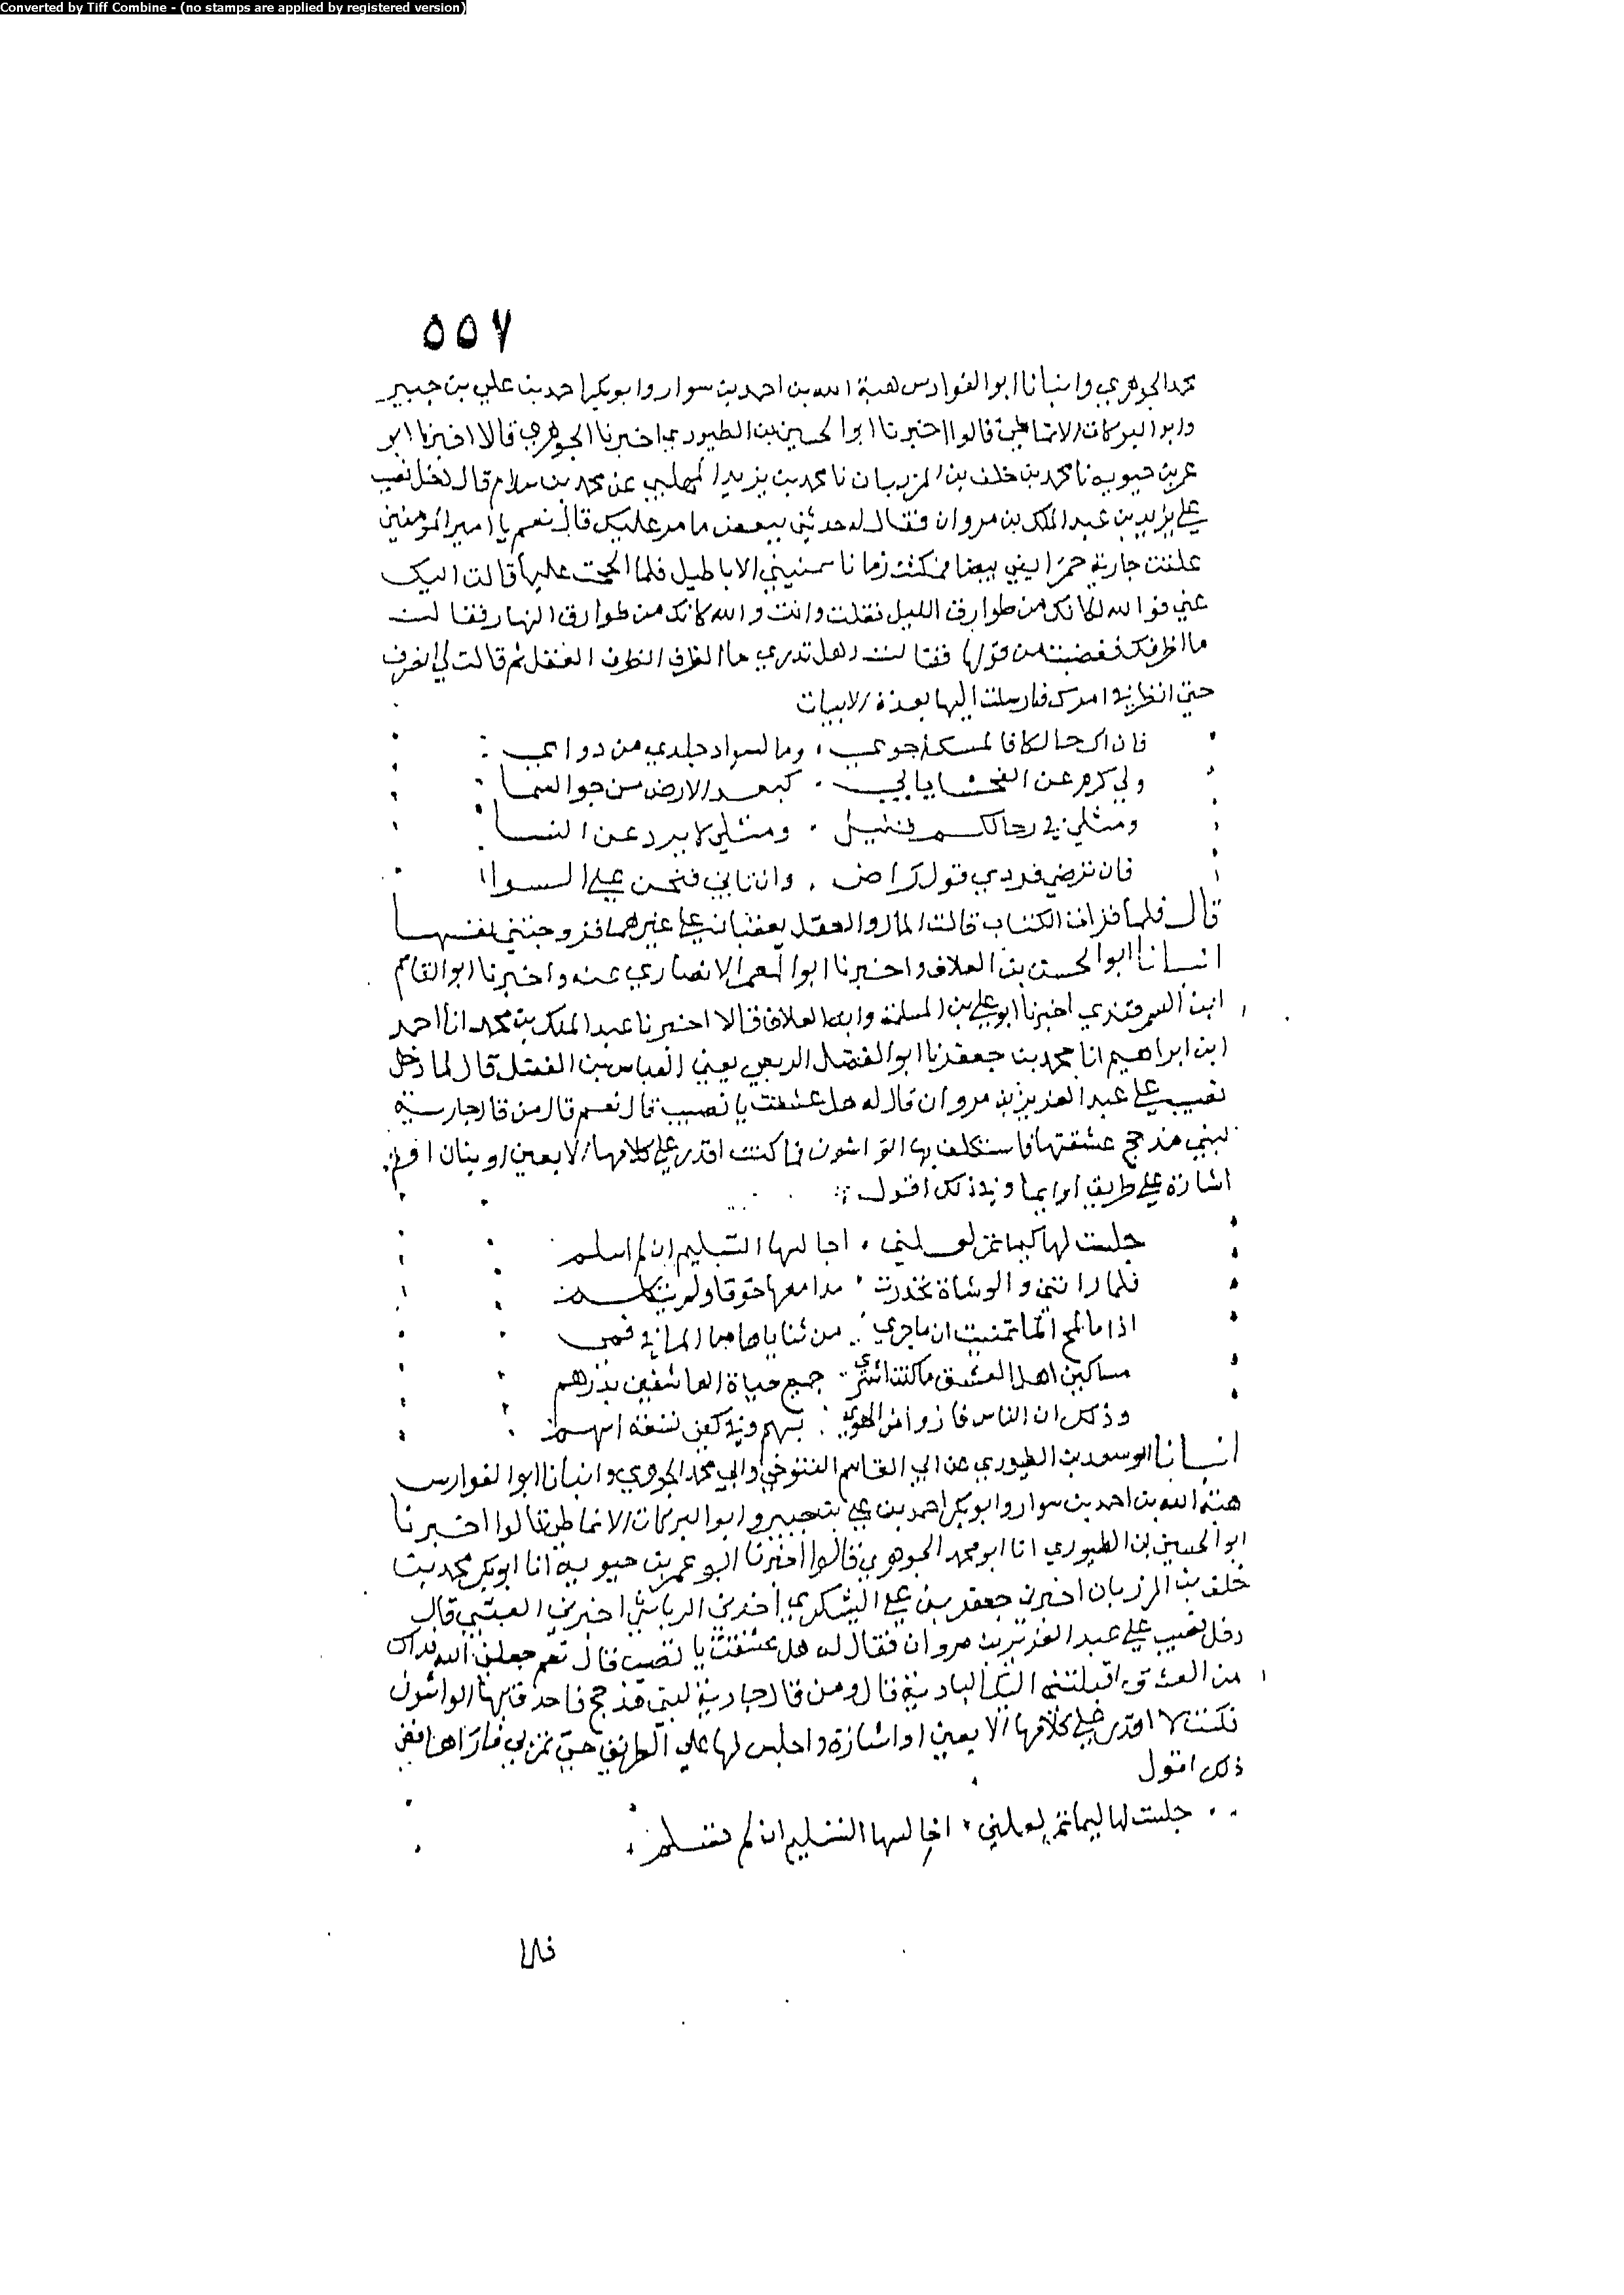 Converted by Tiff Combine - (no stamps are applied by registered version)
٥٥٧
محمد الجوهري وانبانا ابو الفوارس هبة الله بن احمد بن سوار وابو بكر احمد بن علي بن جبير
وابو البركات الانماطي قالوا اخبرنا ابو الحسين بن الطيوري اخبرنا الجوهري قالا اخبرنا ابو
عمر بن حيويه نا محمد بن خلف بن المرزبان نا محمد بن يزيد المهلبي عن محمد بن سلام قال دخل نصيب
علي يزيد بن عبد الملك بن مروان فقال له حدثني ببعض ما مر عليك قال نعم يا امير المومنين
علقت جارية حمرا يعني بيضا فمكثت زمانا تمنيني الاباطيل فلما الححت عليها قالت اليك
عني فوالله لكانك من طوارق الليل فقلت وانت والله كانك من طوارق النهار فقالت
ما اظرفك فغضبت من قولها فقالت وهل تدري ما الظرف الظرف العقل ثم قالت لي انصرف
حتي انظر في امرك فارسلت اليها بهذه الابيات
فان اك حالكا فالمسك احوي وما لسواد جلدي من دوا
ولي كرم عن الفحشا ياتي كبعد الارض من جو السما
ومثلي في رجالكم قليل ومثلي لا يرد عن النسا
فان ترضي فردي قول راض وان تابي فنحن علي السوا
قال فلما قرات الكتاب قالت المال والعقل يعفيان علي غيرهما فزوجتني نفسها
انبانا ابو الحسن بن العلاف واخبرنا ابو المعمر الانصاري عنه واخبرنا ابو القاسم
ابن السمرقندي اخبرنا ابو علي بن المسلمة وابن العلاف قالا اخبرنا عبد الملك بن محمد انا احمد
ابن ابراهيم انا محمد بن جعفر نا ابو الفضل الربعي يعني العباس بن الفضل قال لما دخل
نصيب علي عبد العزيز بن مروان قال له هل عشقت يا نصيب قال نعم قال من قال جارية
لبني مدحج عشقتها فاستكلف بها الواشون فما كنت اقدر علي كلامها الا بعين او بنان او
اشارة علي طريق او ايما وفي ذلك اقول
جلست لها كيما تمر لعلني اخالسها التسليم ان لم اسلم
فلما راتني والوشاة تحدرت مدامعها خوفا ولم تتكلم
مساكين اهل العشق ما كنت اشتري جميع حياة العاشقين بدرهم
وذلك ان الناس فازوا من الهوي بسهم وفي كفي تسعة اسهم
انبانا ابو سعد بن الطيوري عن ابي القاسم التنوخي وابي محمد الجوهري وانبانا ابو الفوارس
هبة الله بن احمد بن سوار وابو بكر احمد بن علي بن جبير وابو البركات الانماطي قالوا اخبرنا
ابو الحسين بن الطيوري انا ابو محمد الجوهري قالوا اخبرنا ابو عمر بن حيويه انا ابو بكر محمد بن
خلف بن المرزبان اخبرني جعفر بن علي اليشكري اخبرني الرياشي اخبرني العتبي قال
دخل نصيب علي عبد العزيز بن مروان فقال له هل عشقت يا نصيب قال نعم جعلني الله فداك
من العشق اقبلتني اليك البادية قال ومن قال جارية لبني مدحج فاحدق بها الواشون
فكنت لا اقدر علي كلامها الا بعين او اشارة واجلس لها علي الطريق حتي تمر بي فاراها ففي
ذلك اقول
جلست لها كيما تمر لعلني اخالسها التسليم ان لم تسلم
فلما